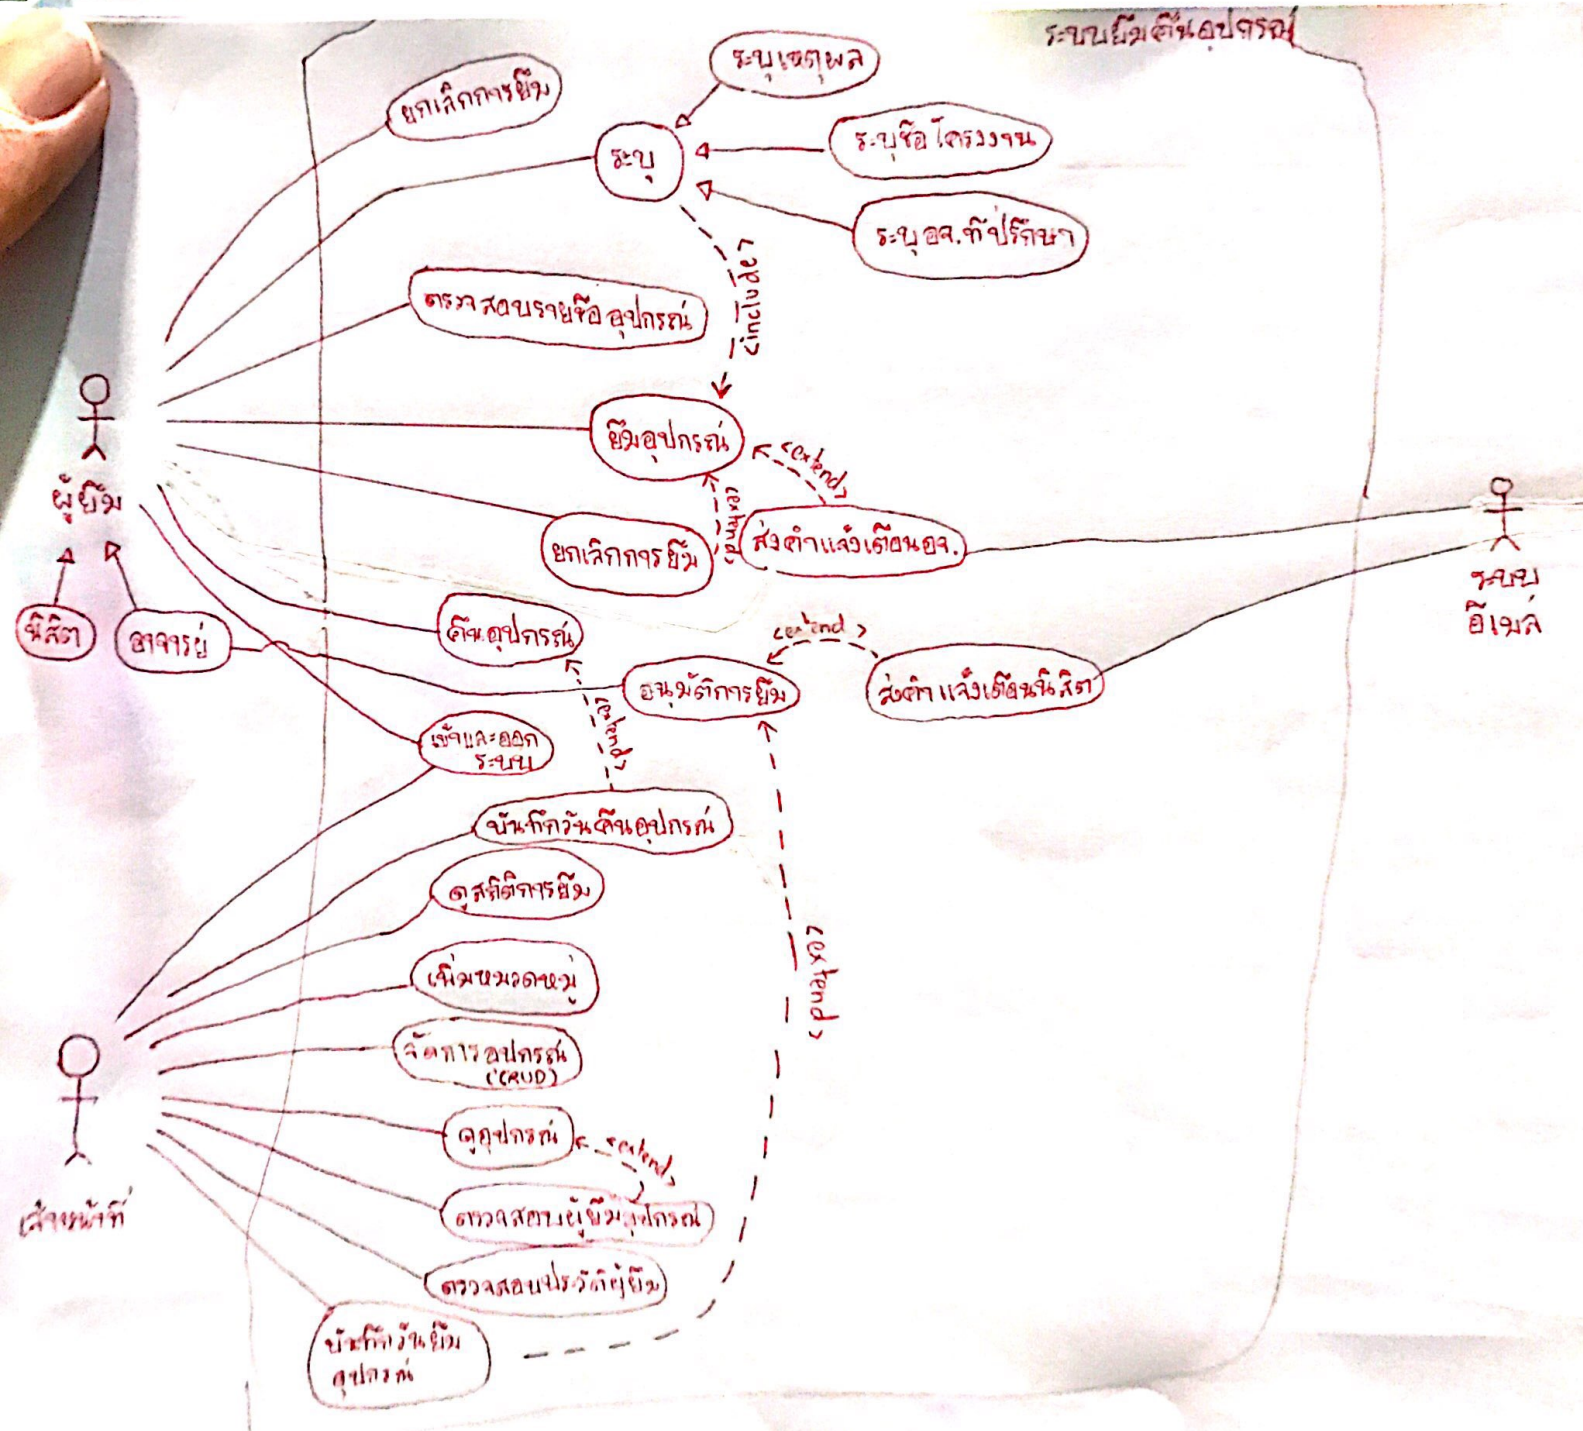 ระบบยืมคืนอุปกรณ์
ระบุเหตุผล
ยกเลิกการยืม
ระบุชื่อโครงงาน
ระบุ
ระบุอจ.ที่ปรึกษา
<include>
ตรวจสอบรายชื่ออุปกรณ์
ยืมอุปกรณ์
<extend>
<extend>
ผู้ยืม
ยกเลิกการยืม
ส่งคำแจ้งเตือนอจ.
ระบบ
อีเมล์
นิสิต
อาจารย์
คืนอุปกรณ์
<extend>
อนุมัติการยืม
ส่งคำแจ้งเตือนนิสิต
<extend>
เข้าและออก
ระบบ
บันทึกวันคืนอุปกรณ์
ดูสถิติการยืม
<extend>
เพิ่มหมวดหมู่
จัดการอุปกรณ์
(CRUD)
ดูอุปกรณ์
<extend>
ตรวจสอบผู้ยืมอุปกรณ์
เจ้าหน้าที่
ตรวจสอบประวัติผู้ยืม
บันทึกวันยืม
อุปกรณ์